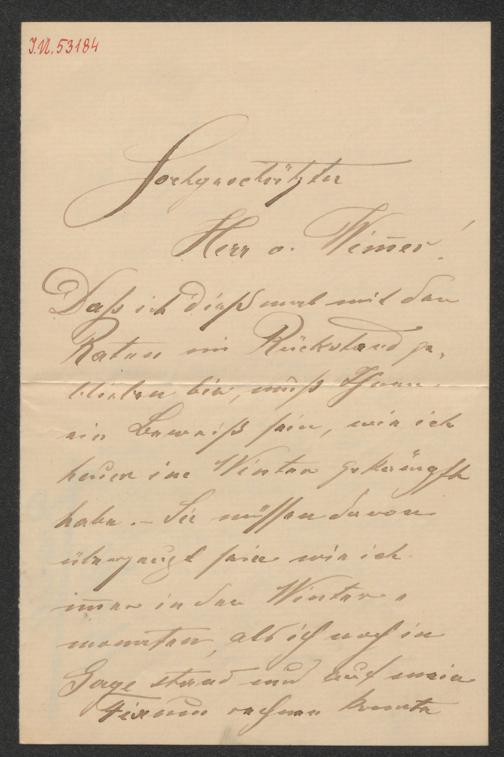 J.N. 53184
Hochgeschätzter
Herr v. Wim̅er!
Daß ich dießmal mit den
Raten im Rückstand ge-
blieben bin, muß Ihnen
ein Beweiß sein, wie ich
heuer im Winter gekämpft
habe. – Sie müssen davon
überzeugt sein wie ich
im̅er in den Winter-
monaten, als ich noch in
Gage stand und auf mein
Fixum rechnen konnte